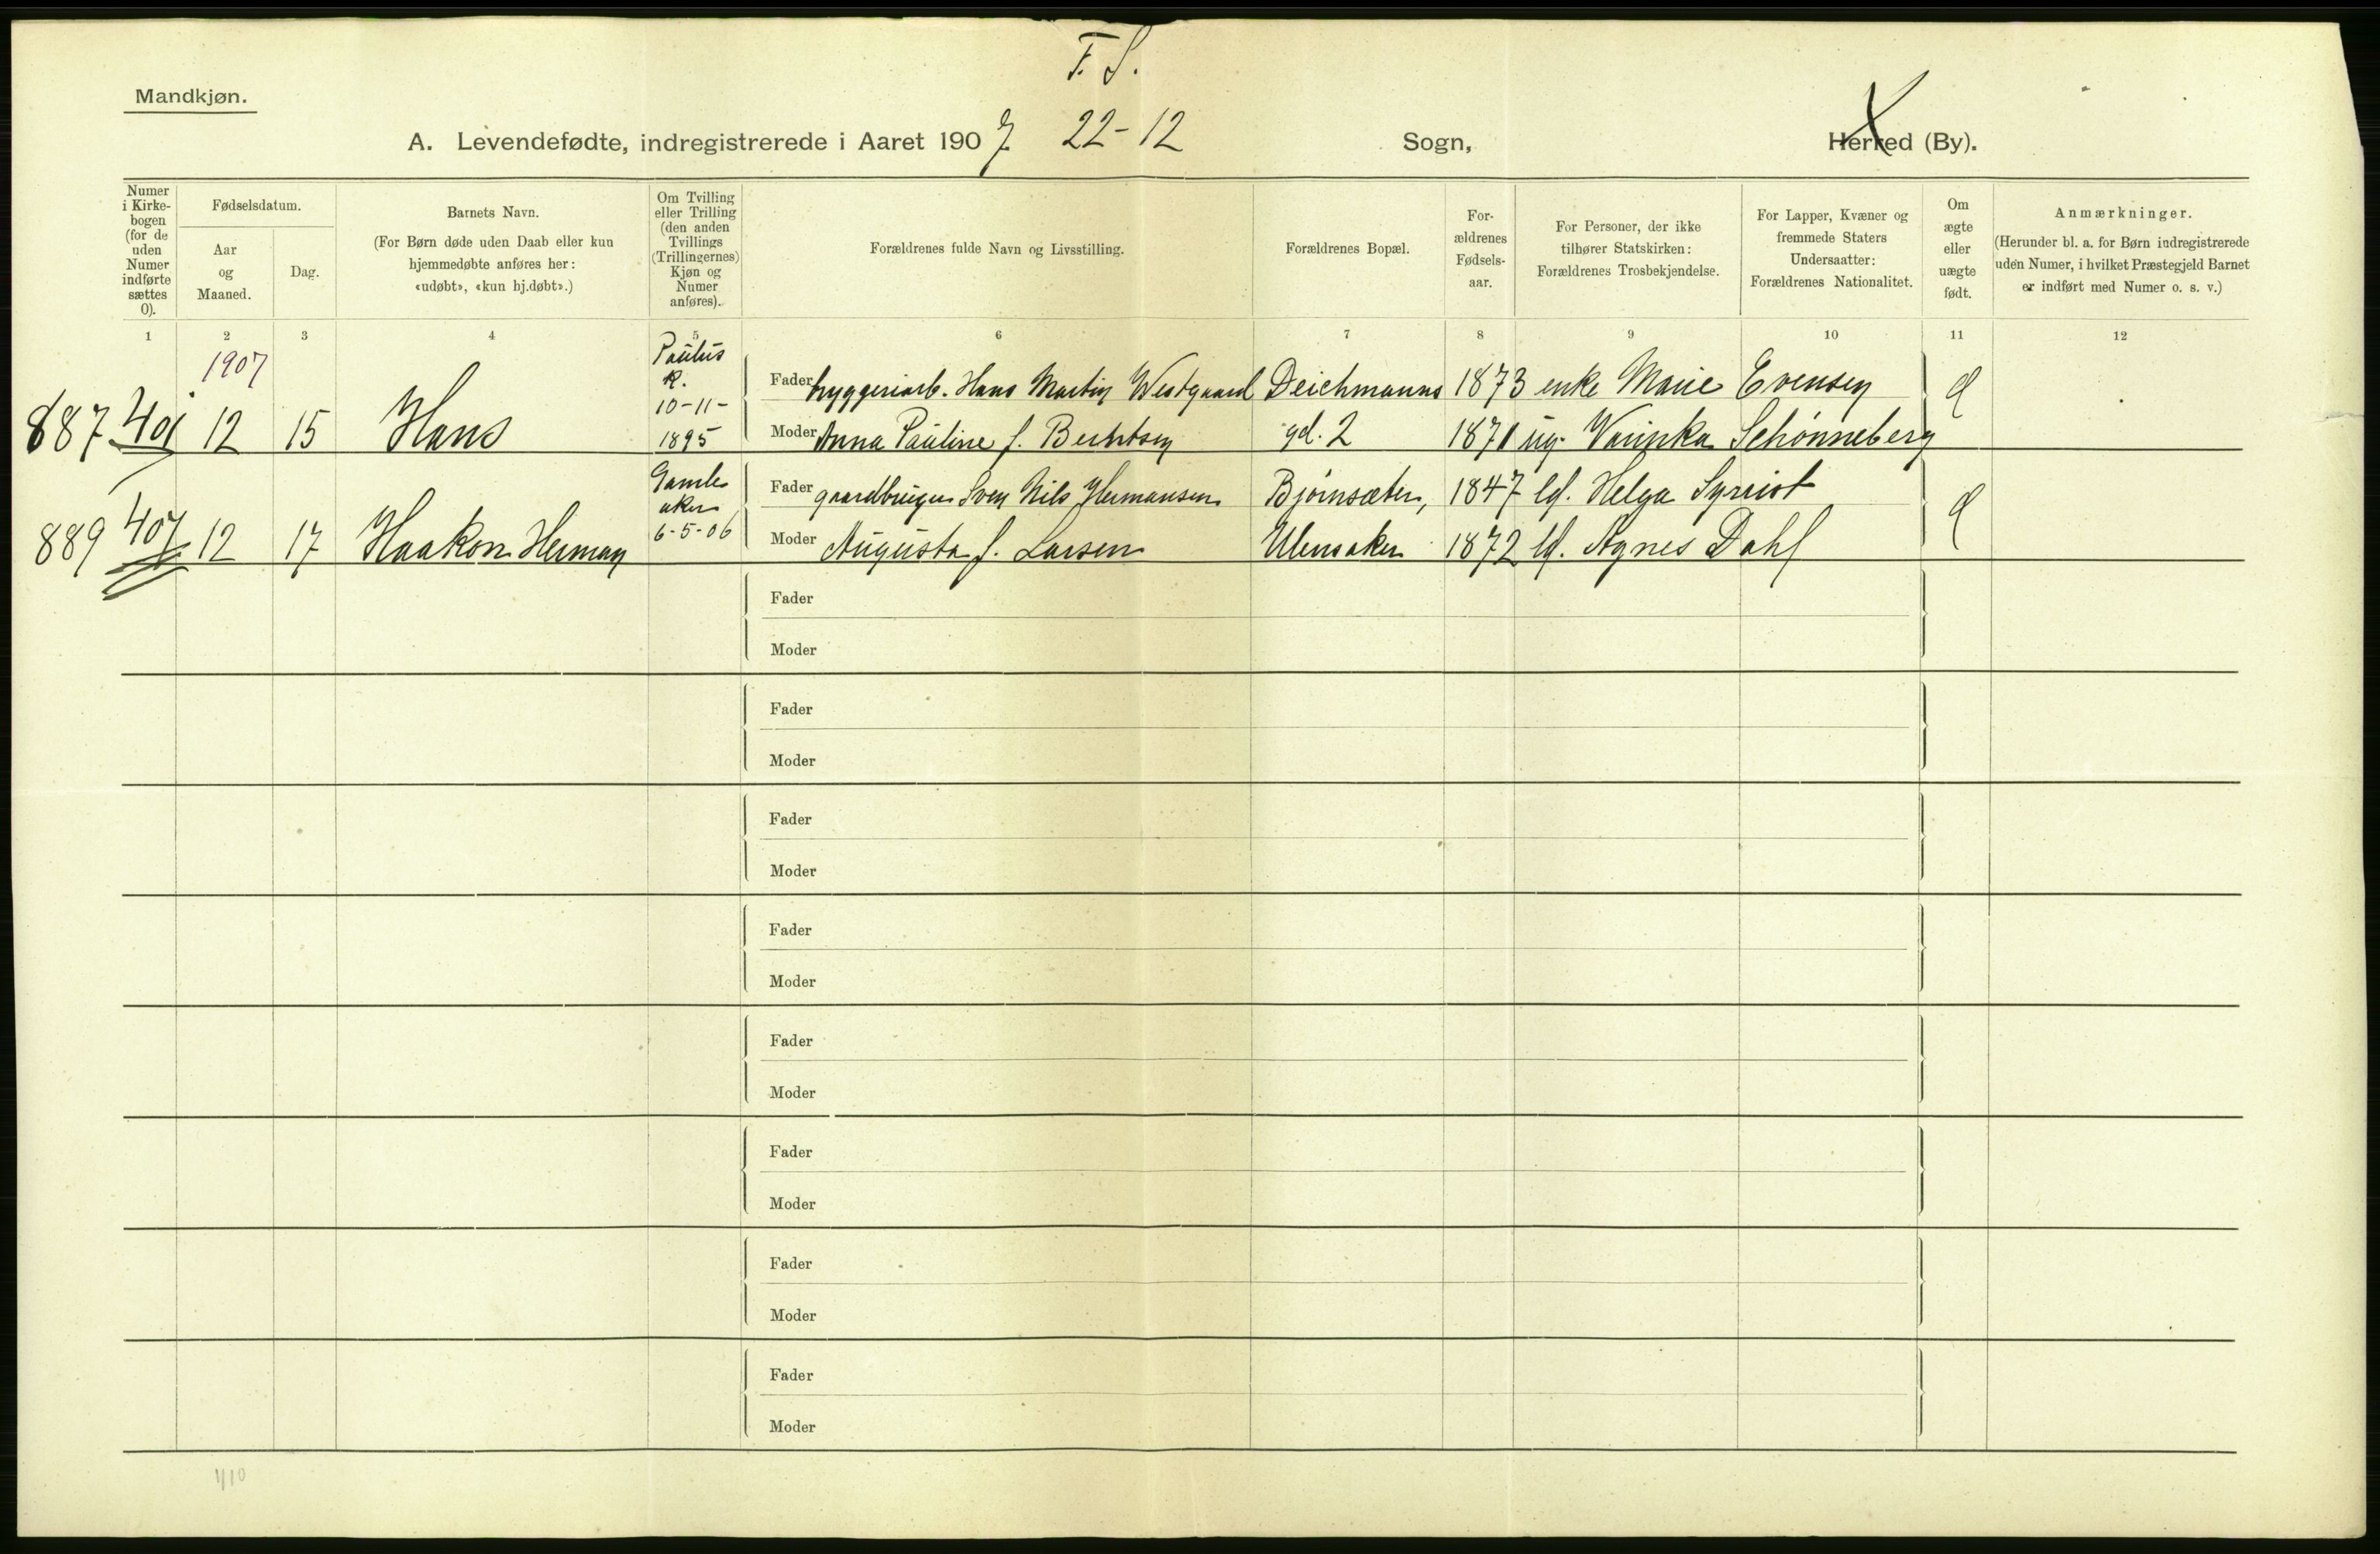 F. S.
Mandkjøn.
A. Levendefødte, indregistrerede i Aaret 1907 22-12 Sogn, Herred (By).
Numer i Kirke-bogen (for de uden Numer indførte sættes 0).
Fødselsdatum.
Aar og Maaned.
Dag.
Barnets Navn.
(For Børn døde uden Daab eller kun hjemmedøbte anføres her: «udøbt», «kun hj.døbt».)
Om Tvilling eller Trilling (den anden Tvillings (Trillingernes) Kjøn og Numer anføres).
Forældrenes fulde Navn og Livsstilling.
Forældrenes Bopæl.
For-ældrenes Fødsels-aar.
For Personer, der ikke tilhører Statskirken: Forældrenes Trosbekjendelse.
For Lapper, Kvæner og fremmede Staters Undersaatter: Forældrenes Nationalitet.
Om ægte eller uægte født.
Anmærkninger.
(Herunder bl. a. for Børn indregistrerede uden Numer, i hvilket Præstegjeld Barnet er indført med Numer o. s. v.)
1 2 3 4 5 6 7 8 9 10 11 12
1907
Paulus
K.
10-11-
1895
Fader bryggeriarb. Hans Martin Westgaard Deichmanns 1873 enke Marie Evensen
887 12 15 Hans
Moder Anna Pauline f. Berntsen gd. 2 1871 ug. Schønneberg
Gamle
aker
6-5-06
Fader gaardbruger Sven Nils Hermansen Bjørnsæter, 1847 Helga
889 407 12 17 Haakon Herman
Moder Augusta f. Larsen Ulensaker 1872 Agnes Dahl
Fader
Moder
Fader
Moder
Fader
Moder
Fader
Moder
Fader
Moder
Fader
Moder
Fader
Moder
Fader
Moder
410